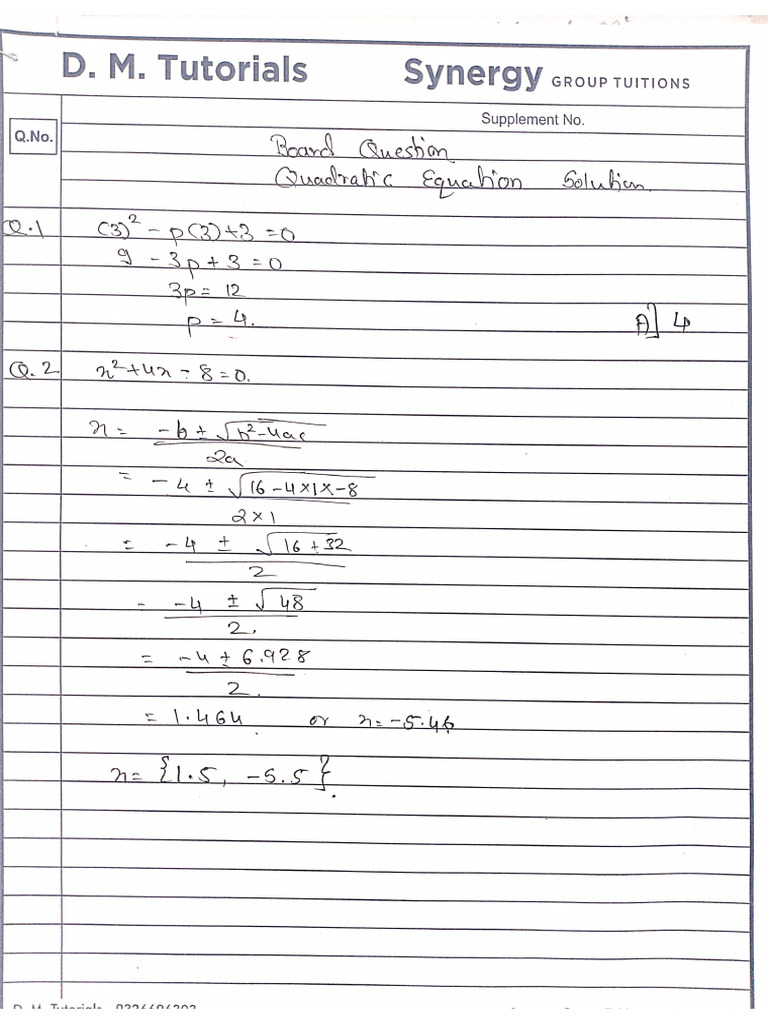 D. M. Tutorials Synergy GROUP TUITIONS
Supplement No.
Q.No.
Board Question
Quadratic Equation Solution.
Q.1 (3)² - p(3)+3 = 0
9 - 3p + 3 = 0
3p = 12
p = 4.
A] 4
Q. 2 x²+4x - 8 = 0.
x = -b ± √b²-4ac
2a
= -4 ± √16-4×1×-8
2×1
= -4 ± √16+32
2
= -4 ± √48
2.
= -4 ± 6.928
2.
= 1.464 or x = -5.46
x = {1.5, -5.5}.
D. M. Tutorials